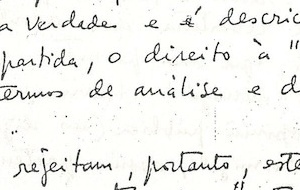 a verdades e é descri
partida, o direito à "
termos de análise e d
rejeitam, portanto, este